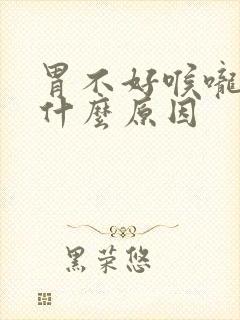 胃不好喉嚨
什麼原因
黑荣悠